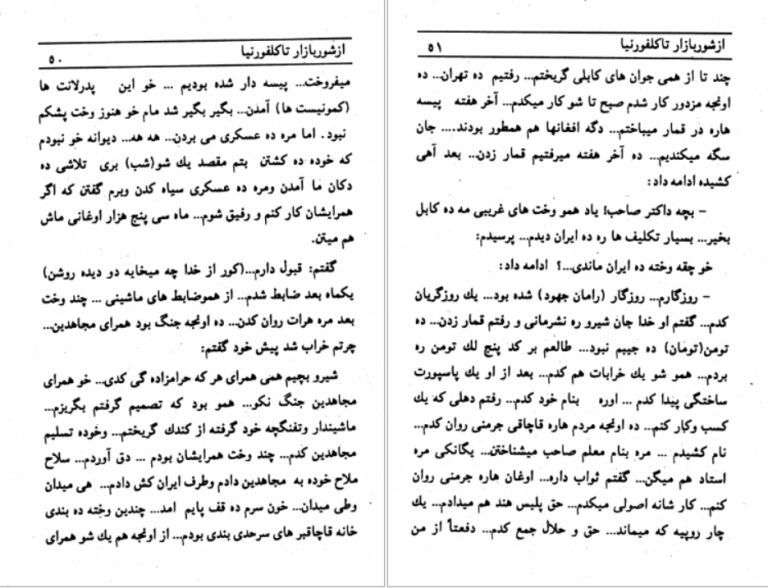 ازشوربازار تاکلفورنیا
۵۰
میفروخت... پیسه دار شده بودیم ... خو این پدرلانت ها
(کمونیست ها) آمدن... بگیر بگیر شد مام خو هنوز وخت پشکم
نبود. اما مره ده عسکری می بردن... هه هه... دیوانه خو نبودم
که خوده ده کشتن بتم مقصد یك شو(شب) بری تلاشی ده
دکان ما آمدن ومره ده عسکری سیاه کدن وبرم گفتن که اگر
همرایشان کار کنم و رفیق شوم... ماه سی پنج هزار اوغانی ماش
هم میتن.
گفتم: قبول دارم...(کور از خدا چه میخایه دو دیده روشن)
یکماه بعد ضابط شدم... از هموضابط های ماشینی ... چند وخت
بعد مره هرات روان کدن... ده اونجه جنگ بود همرای مجاهدین...
چرتم خراب شد پیش خود گفتم:
شیرو بچیم همی همرای هر که حرامزاده گی کدی... خو همرای
مجاهدین جنگ نکو... همو بود که تصمیم گرفتم بگریزم...
ماشیندار وتفنگچه خود گرفته از کندك گریختم... وخوده تسلیم
مجاهدین کدم... چند وخت همرایشان بودم ... دق آوردم... سلاح
ملاح خوده به مجاهدین دادم وطرف ایران کش دادم... هی میدان
وطی میدان... خون سرم ده قف پایم آمد... چندین وخته ده بندی
خانه قاچاقبر های سرحدی بندی بودم... از اونجه هم یك شو همرای
ازشوربازار تاکلفورنیا
۵۱
چند تا از همی جوان های کابلی گریختم... رفتیم ده تهران... ده
اونجه مزدور کار شدم صبح تا شو کار میکدم... آخر هفته پیسه
هاره در قمار میباختم... دگه افغانها هم همطور بودند.... جان
سگه میکندیم... ده آخر هفته میرفتیم قمار زدن... بعد آهی
کشیده ادامه داد:
– بچه داکتر صاحب! یاد همو وخت های غریبی مه ده کابل
بخیر... بسیار تکلیف ها ره ده ایران دیدم... پرسیدم:
خو چقه وخته ده ایران ماندی...؟ ادامه داد:
– روزگارم... روزگار (رامان جهود) شده بود... یك روزگریان
کدم... گفتم او خدا جان شیرو ره نشرمانی و رفتم قمار زدن... ده
تومن(تومان) ده جیبم نبود... طالعم بر کد پنج لك تومن ره
بردم... همو شو یك خرابات هم کدم... بعد از او یك پاسپورت
ساختگی پیدا کدم ... اوره بنام خود کدم... رفتم دهلی که یك
کسب وکار کنم... ده اونجه مردم هاره قاچاقی جرمنی روان کدم...
نام کشیدم ... مره بنام معلم صاحب میشناختن... یگانکی مره
استاد هم میگن... گفتم ثواب داره... اوغان هاره جرمنی روان
کنم... کار شانه اصولی میکدم... حق پلیس هند هم میدادم... یك
چار روپیه که میماند... حق و حلال جمع کدم... دفعتاً از من